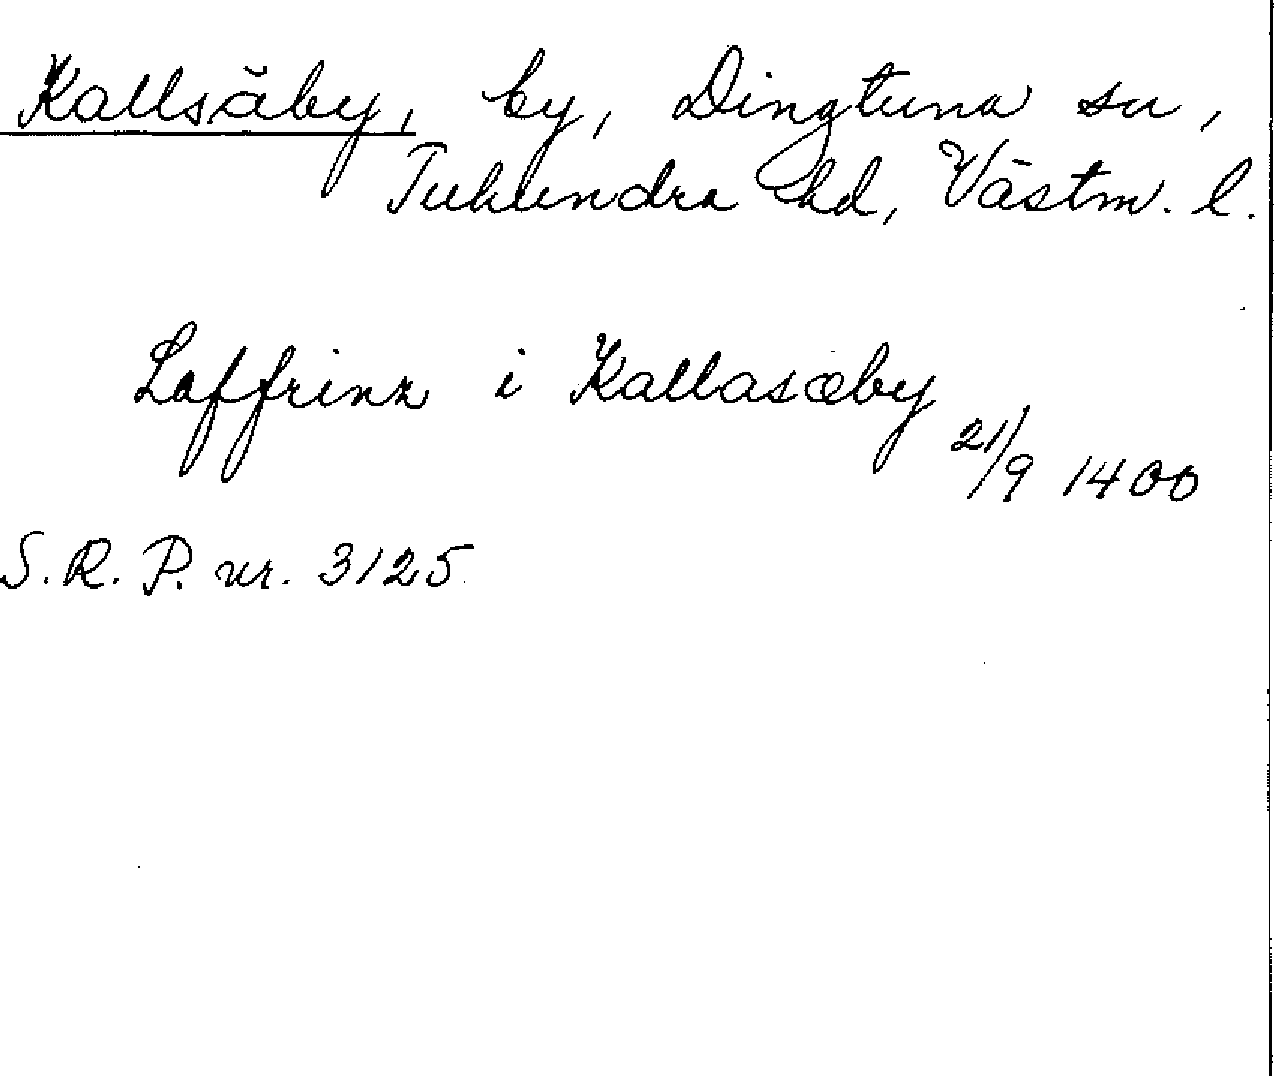 Kallsäby, by, Dingtuna sn,
Tuhundra hd, Västm. l.
Laffrinz i Kallasæby
21/9 1400
S.R.P. nr. 3125